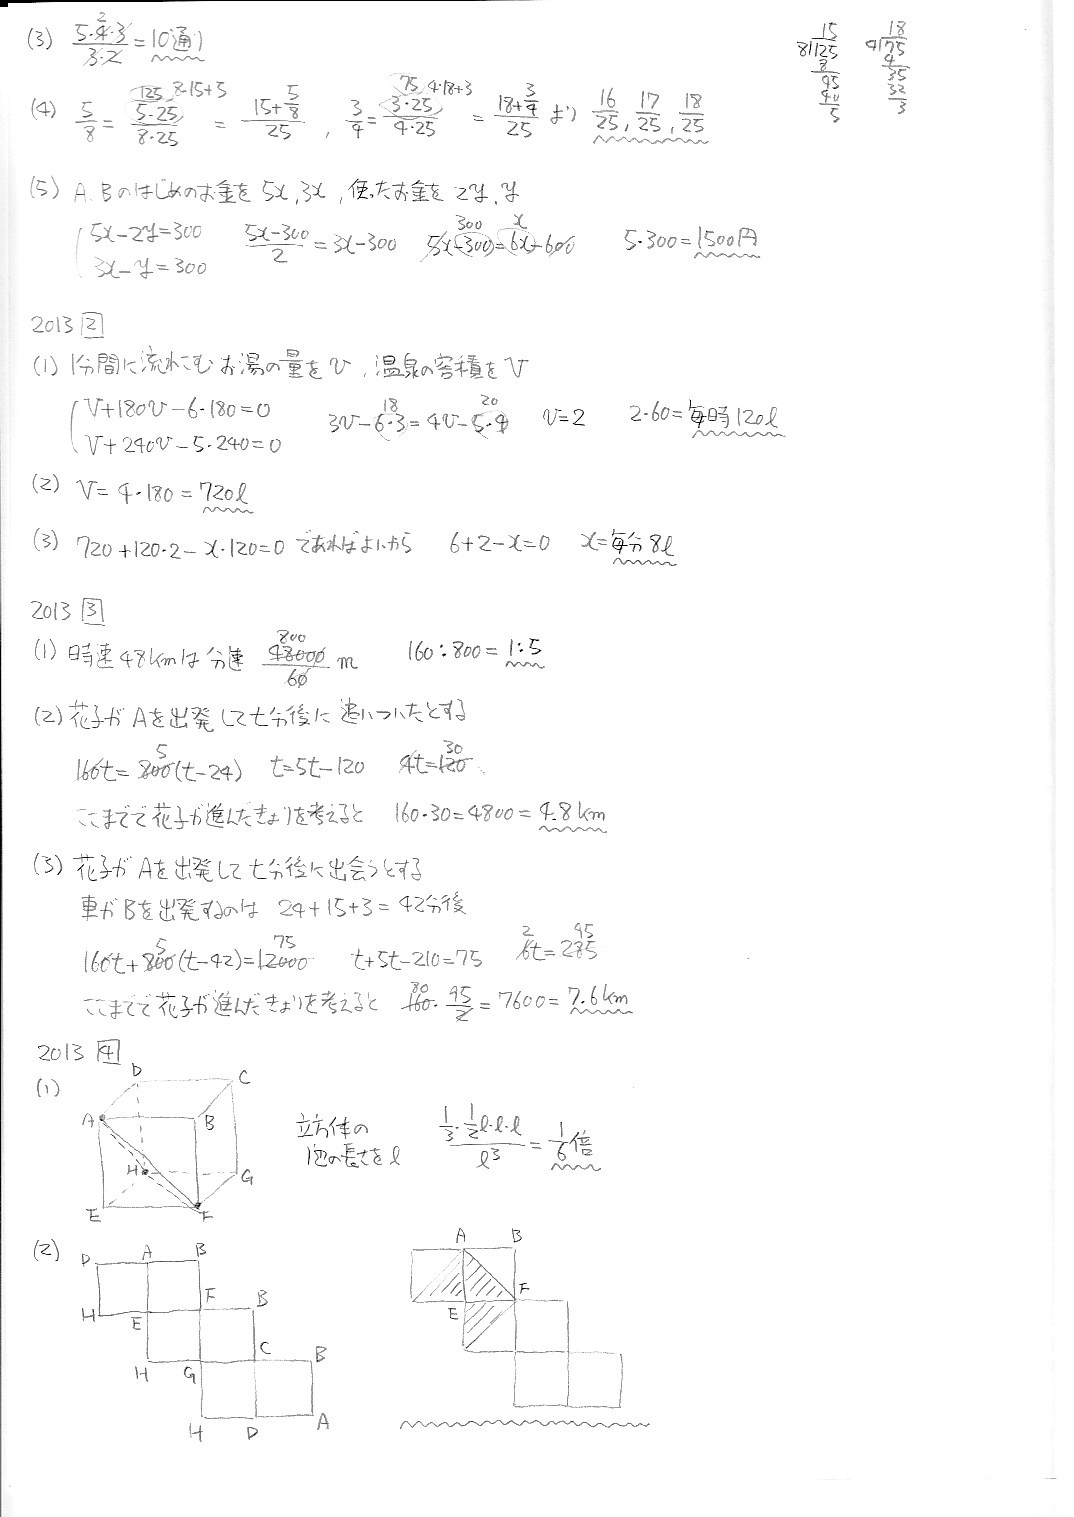 (3) 5·4·3/3·2 = 10通り
(4) 5/8 = 5·25/8·25 = (15+5/8)/25 , 3/4 = 3·25/4·25 = (18+3/4)/25 より 16/25, 17/25, 18/25
125 8·15+5
75 4·18+3
15
8)125
8
45
40
5
18
4)75
4
35
32
3
(5) A,Bのはじめのお金を 5x,3x , 使ったお金を 2y, y
5x-2y=300
3x-y=300
(5x-300)/2 = 3x-300 5x-300=6x-600 5·300=1500円
300 x
2013 2
(1) 1分間に流れこむお湯の量をv , 温泉の容積をV
V+180v-6·180=0
V+240v-5·240=0
3v-6·3=4v-5·4 v=2 2·60=毎時120l
18 20
(2) V=4·180=720l
(3) 720+120·2-x·120=0 であればよいから 6+2-x=0 x=毎分8l
2013 3
(1) 時速48kmは分速 48000/60 m 160:800=1:5
800
(2) 花子がAを出発してt分後に追いついたとする
160t=800(t-24) t=5t-120 4t=120
5 30
ここまでで花子が進んだきょりを考えると 160·30=4800=4.8km
(3) 花子がAを出発してt分後に出会うとする
車がBを出発するのは 24+15+3=42分後
160t+800(t-42)=12000 t+5t-210=75 6t=285
5 75 2 95
ここまでで花子が進んだきょりを考えると 160·95/2=7600=7.6km
80
2013 4
(1)
D C
A B
H G
E F
立方体の
1辺の長さをl
(1/3·1/2 l·l·l)/l³ = 1/6倍
(2)
D A B
H E F B
H G C B
H D A
A B
E F